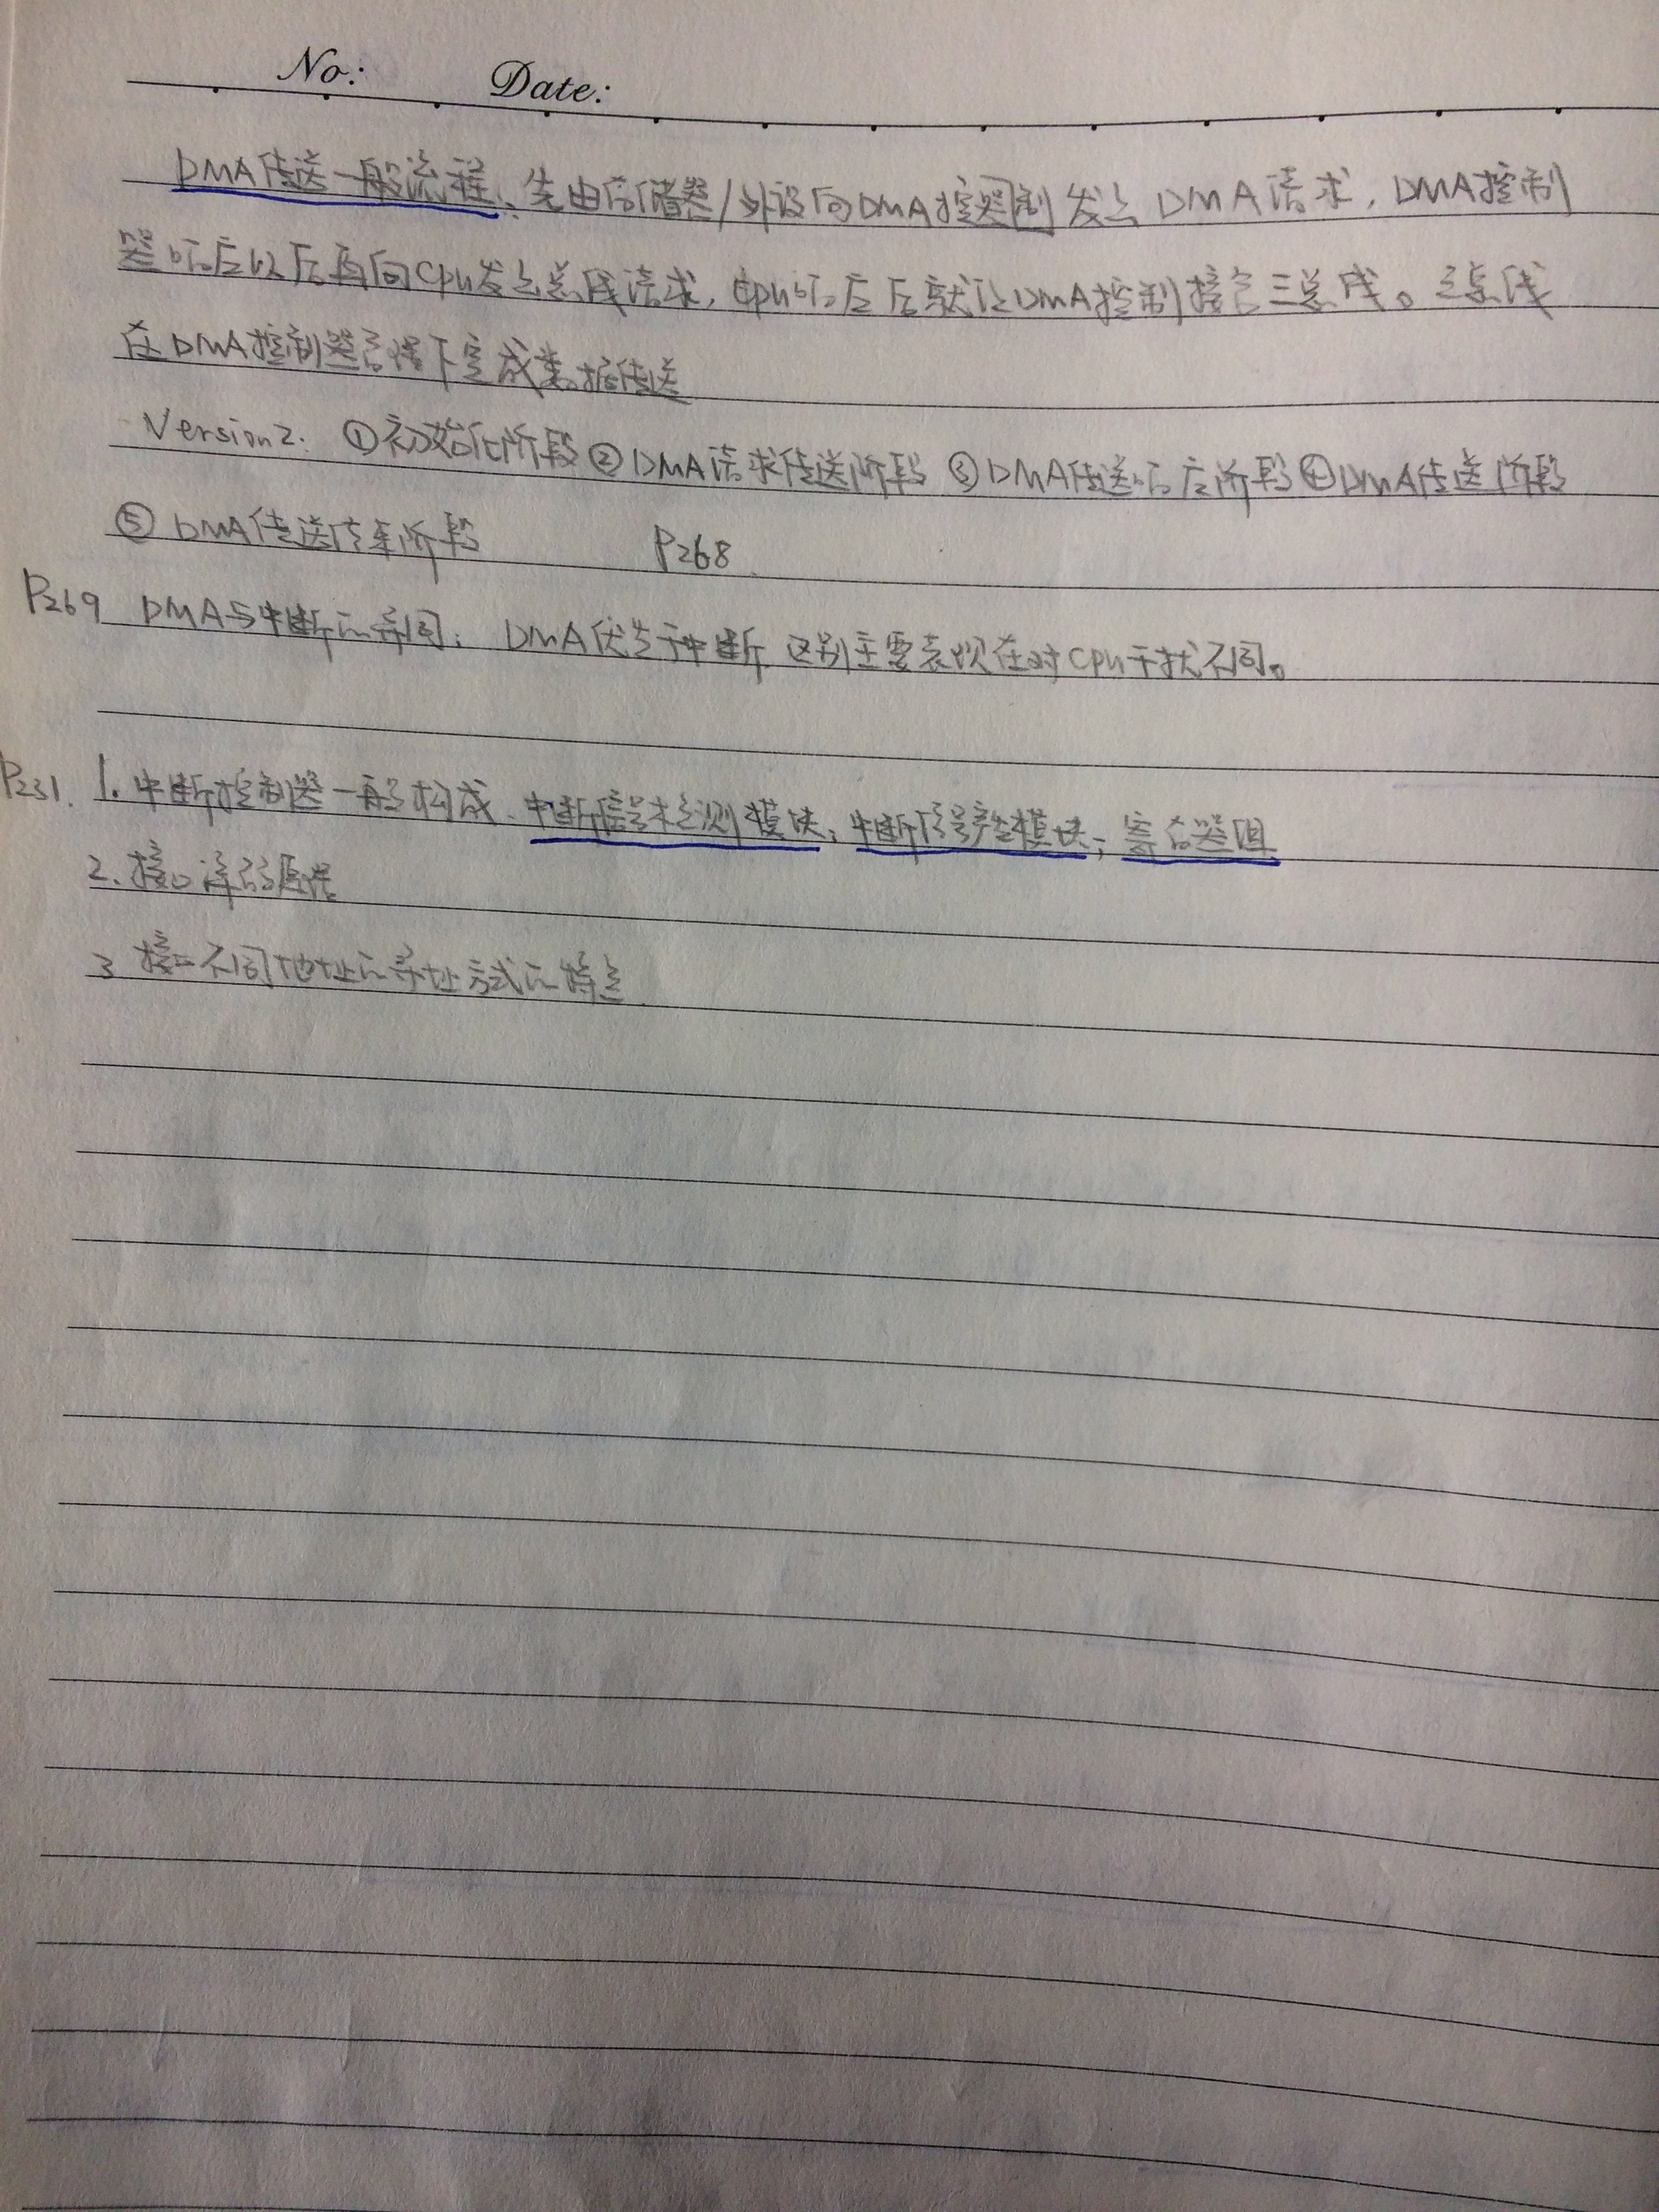 No: Date:
DMA传送一般流程:先由存储器/外设向DMA控器制发出DMA请求,DMA控制
器响应以后再向Cpu发出总线请求,Cpu响应后就让DMA控制接管三总线。三总线
在DMA控制器管理下完成数据传送
Version2: ①初始化阶段②DMA请求传送阶段③DMA传送响应阶段④DMA传送阶段
⑤DMA传送结束阶段 P268
P269 DMA与中断的异同:DMA优先于中断 区别主要表现在对Cpu干扰不同。
P231. 1.中断控制器一般构成:中断信号检测模块;中断信号产生模块;寄存器组
2.接口译码原理
3.接口不同地址的寻址方式的特点